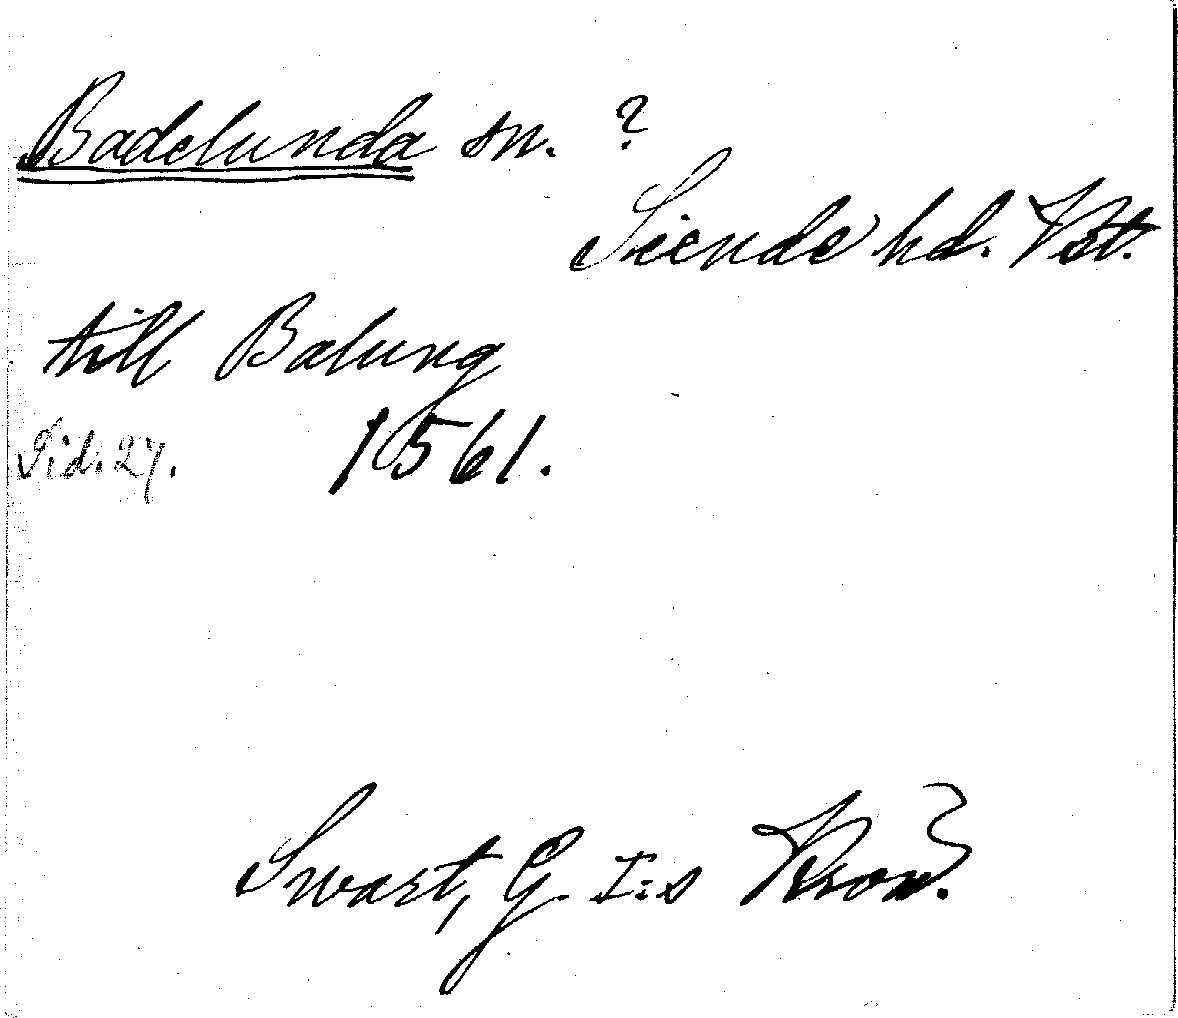 Badelunda sn. ?
Siende hd. Vst.
till Balung
Sid. 27. 1561.
Swart, G. I:s Krön.